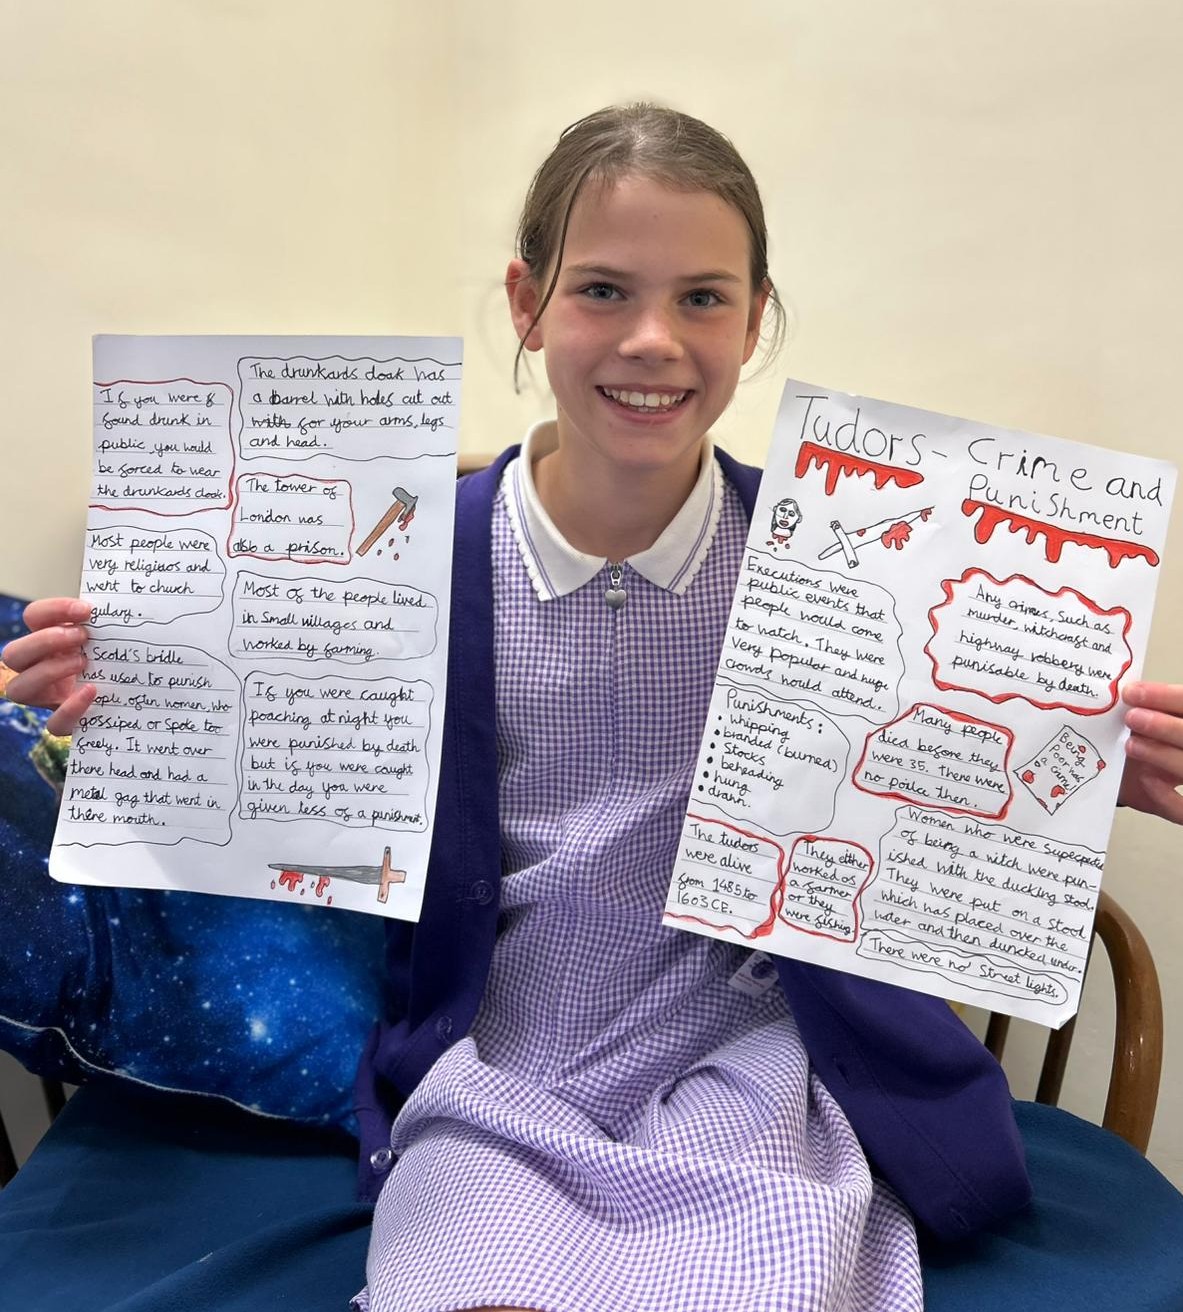 If you were f
found drunk in
public, you would
be forced to wear
the drunkards cloak.
The drunkards cloak was
a barrel with holes cut out
with for your arms, legs
and head.
The tower of
London was
also a prison.
Most people were
very religious and
went to church
gulary.
Most of the people lived
in small villages and
worked by farming.
Scold's bridle
was used to punish
people, often women, who
gossiped or spoke too
freely. It went over
there head and had a
metal gag that went in
there mouth.
If you were caught
poaching at night you
were punished by death
but if you were caught
in the day you were
given less of a punishment.
Tudors - Crime and
Punishment
Executions were
public events that
people would come
to watch. They were
very popular and huge
crowds would attend.
Any crimes, such as
murder, witchcraft and
highway robbery were
punisable by death.
Punishments:
• whipping
• branded (burned)
• Stocks
• beheading
• hung
• drawn.
Many people
died before they
were 35. There were
no poilce then.
Being
poor was
a crime!
The tudors
were alive
from 1485 to
1603 CE.
They either
worked as
a farmer
or they
were fishing.
Women who were
of being a witch were pun-
ished with the ducking stool.
They were put on a stool
which was placed over the
water and then duncked under.
There were no Street lights.